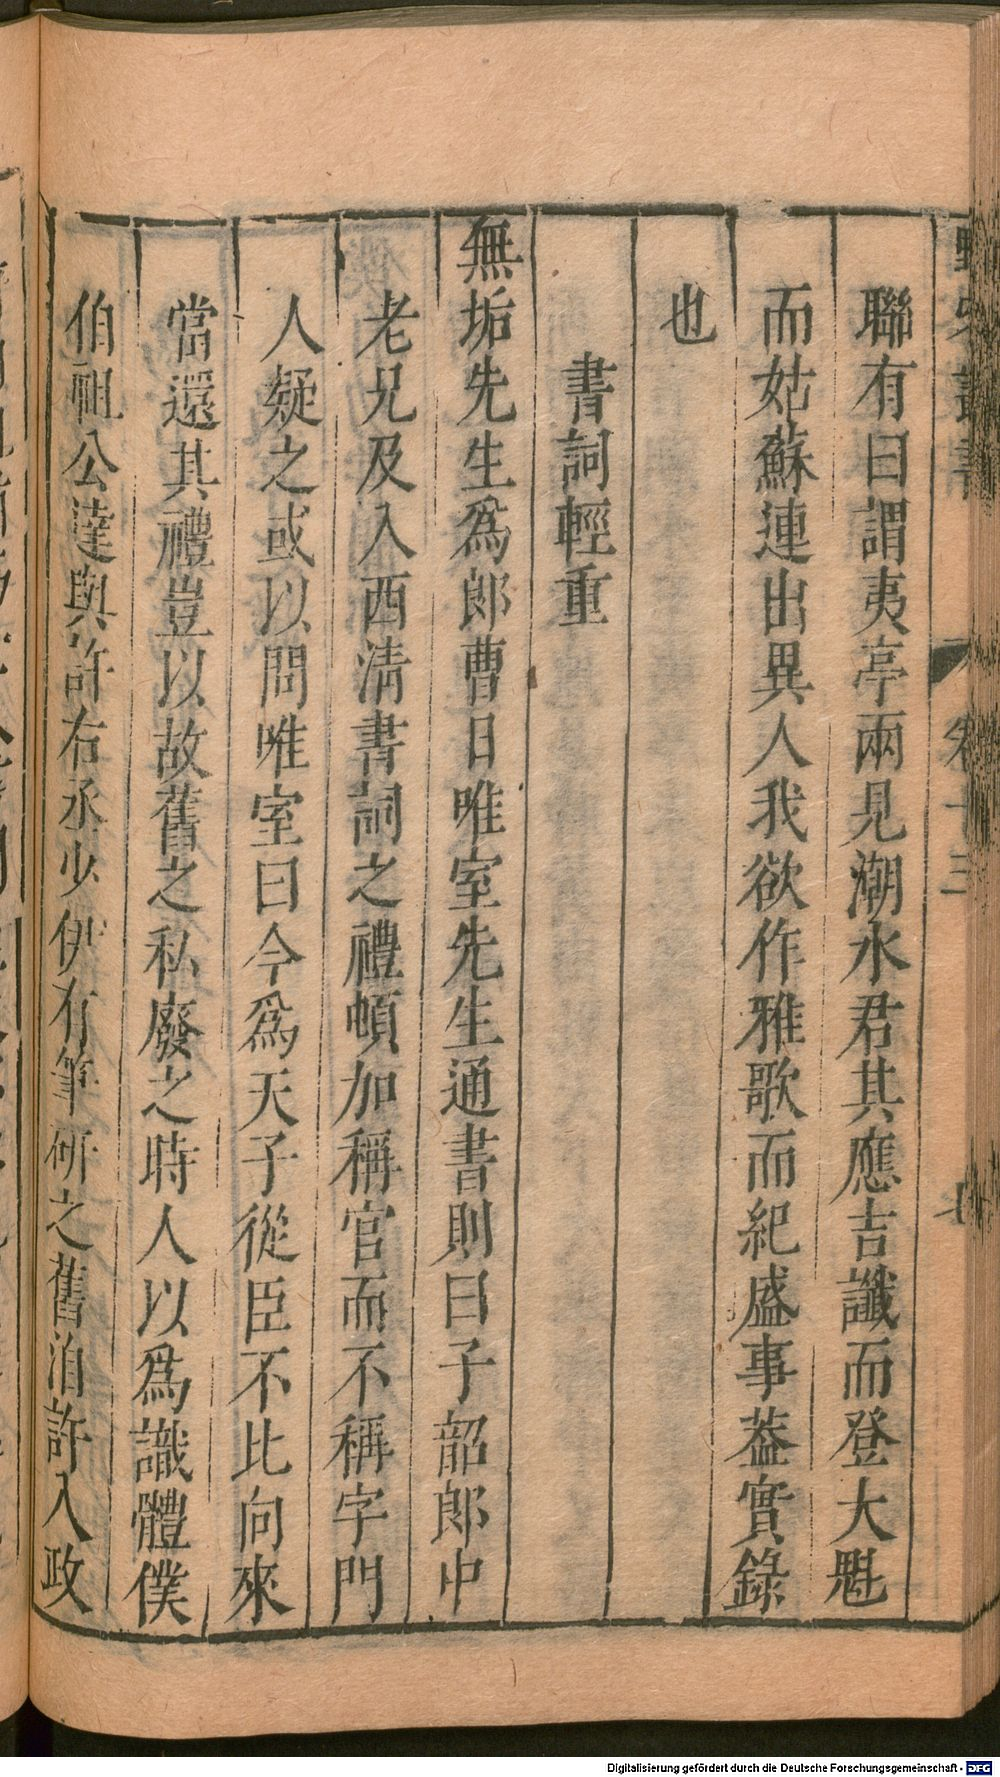 野客叢書
卷十三
聯有曰謂夷亭兩見潮水君其應吉讖而登大魁
而姑蘇連出異人我欲作雅歌而紀盛事葢實錄
也
書詞輕重
無垢先生爲郎曹日唯室先生通書則曰子韶郎中
老兄及入西淸書詞之禮頓加稱官而不稱字門
人疑之或以問唯室曰今爲天子從臣不比向來
當還其禮豈以故舊之私廢之時人以爲識體僕
伯祖公達與許右丞少伊有筆硏之舊洎許入政
Digitalisierung gefördert durch die Deutsche Forschungsgemeinschaft - DFG